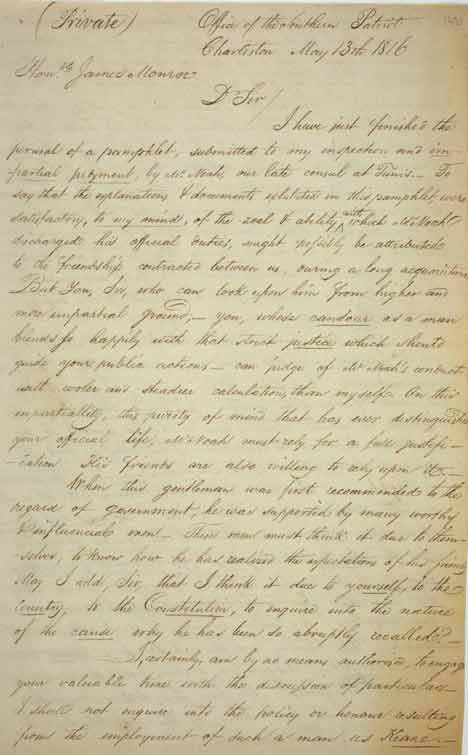 (Private) Office of the Southern Patriot
Charleston May 13th 1816
Honble James Monroe
Dr Sir/
I have just finished the
perusal of a pamphlet, submitted to my inspection and im-
partial judgment, by Mr Noah, our late consul at Tunis — To
say that the explanations & documents exhibited in this pamphlet, were
satisfactory, to my mind, of the zeal & ability with which Mr Noah
discharged his official duties, might possibly be attributed
to the friendship contracted between us, during a long acquaintance
But You, Sir, who can look upon him from higher and
more impartial ground, — you, whose candour as a man
blends so happily with that strict justice which should
guide your public actions — can judge of Mr Noah's conduct
with cooler and steadier calculation, than myself. On this
impartiality, this purity of mind that has ever distinguished
your official life, Mr Noah must rely for a full justifi-
-cation His friends are also willing to rely upon it —
When this gentleman was first recommended to the
regard of government, he was supported by many worthy
& influencial men — These men must think it due to them-
selves, to know how he has realized the expectations of his friends
May I add, Sir, that I think it due to yourself, to the
country, to the Constitution, to inquire into the nature
of the cause why he has been so abruptly recalled? —
I, certainly, am by no means authorised to engage
your valuable time with the discussion of particulars
I shall not inquire into the policy or honour resulting
from the employment of such a man as Keane. —